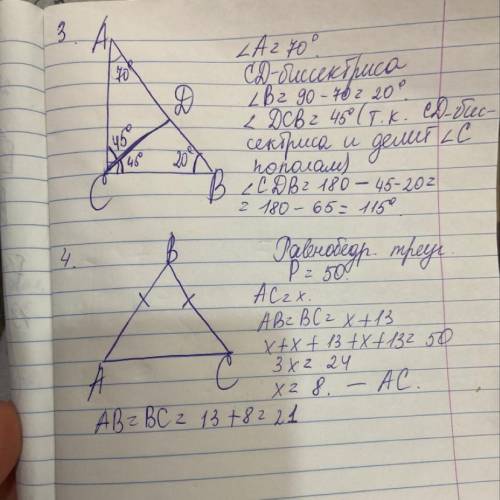 3.
A
70°
D
45°
45°
20°
C
B
∠A = 70°
CD-биссектриса
∠B = 90 - 70 = 20°
∠ DCB = 45° (т.к. CD-бис-
сектриса и делит ∠C
пополам)
∠CDB = 180 - 45 - 20 =
= 180 - 65 = 115°.
4.
B
A
C
Равнобедр. треуг.
P = 50.
AC = x.
AB = BC = x + 13
x + x + 13 + x + 13 = 50
3x = 24
x = 8. — AC.
AB = BC = 13 + 8 = 21